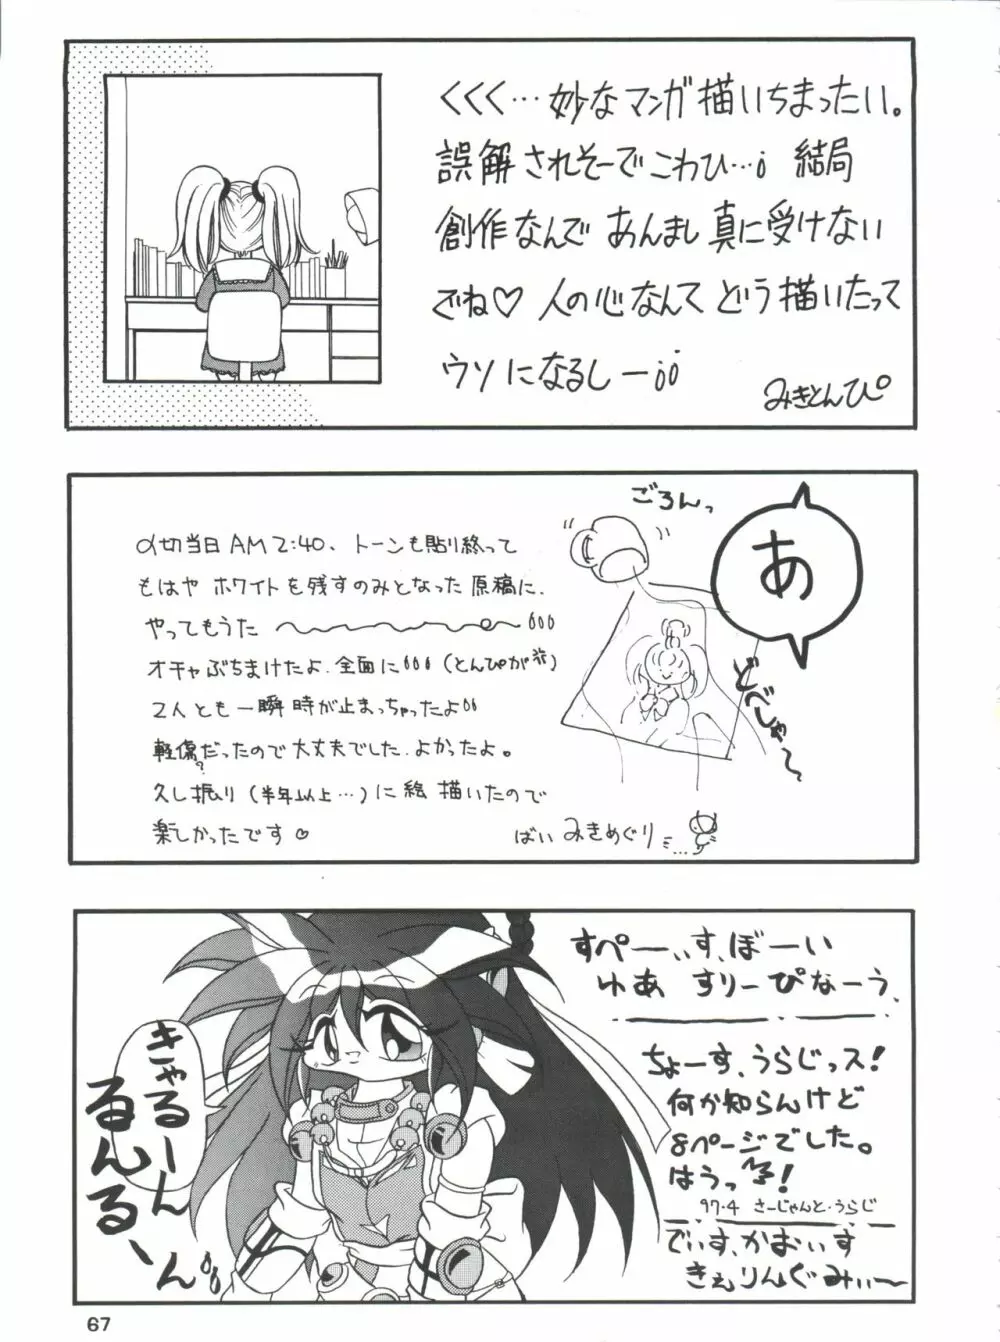 くくく…妙なマンガ描いちまったい。
誤解されそーでこわひ…¡ 結局
創作なんで あんまし真に受けない
でね♡ 人の心なんて どう描いたって
ウソになるしー¡¡
みきとんぴ
ごろんっ
あ
〆切当日AM2:40、トーンも貼り終って
もはや ホワイトを残すのみとなった原稿に、
やってもうた
オチャぶちまけたよ.全面に(とんぴが)
2人とも一瞬時が止まっちゃったよ
軽傷だったので大丈夫でした.よかったよ。
?
久し振り(半年以上…)に絵描いたので
楽しかったです♡
ばい みきめぐり
どべしゃ〜
すぺー、す、ぼーい
ゆあ すりーぴなーう、
ちょーす、うらじっス!
何か知らんけど
8ページでした。
はうっ!
97.4 さーじゃんと・うらじ
でぃす、かおいす
きぇりんぐみぃ〜
きゃるーん
るんる、ん
67